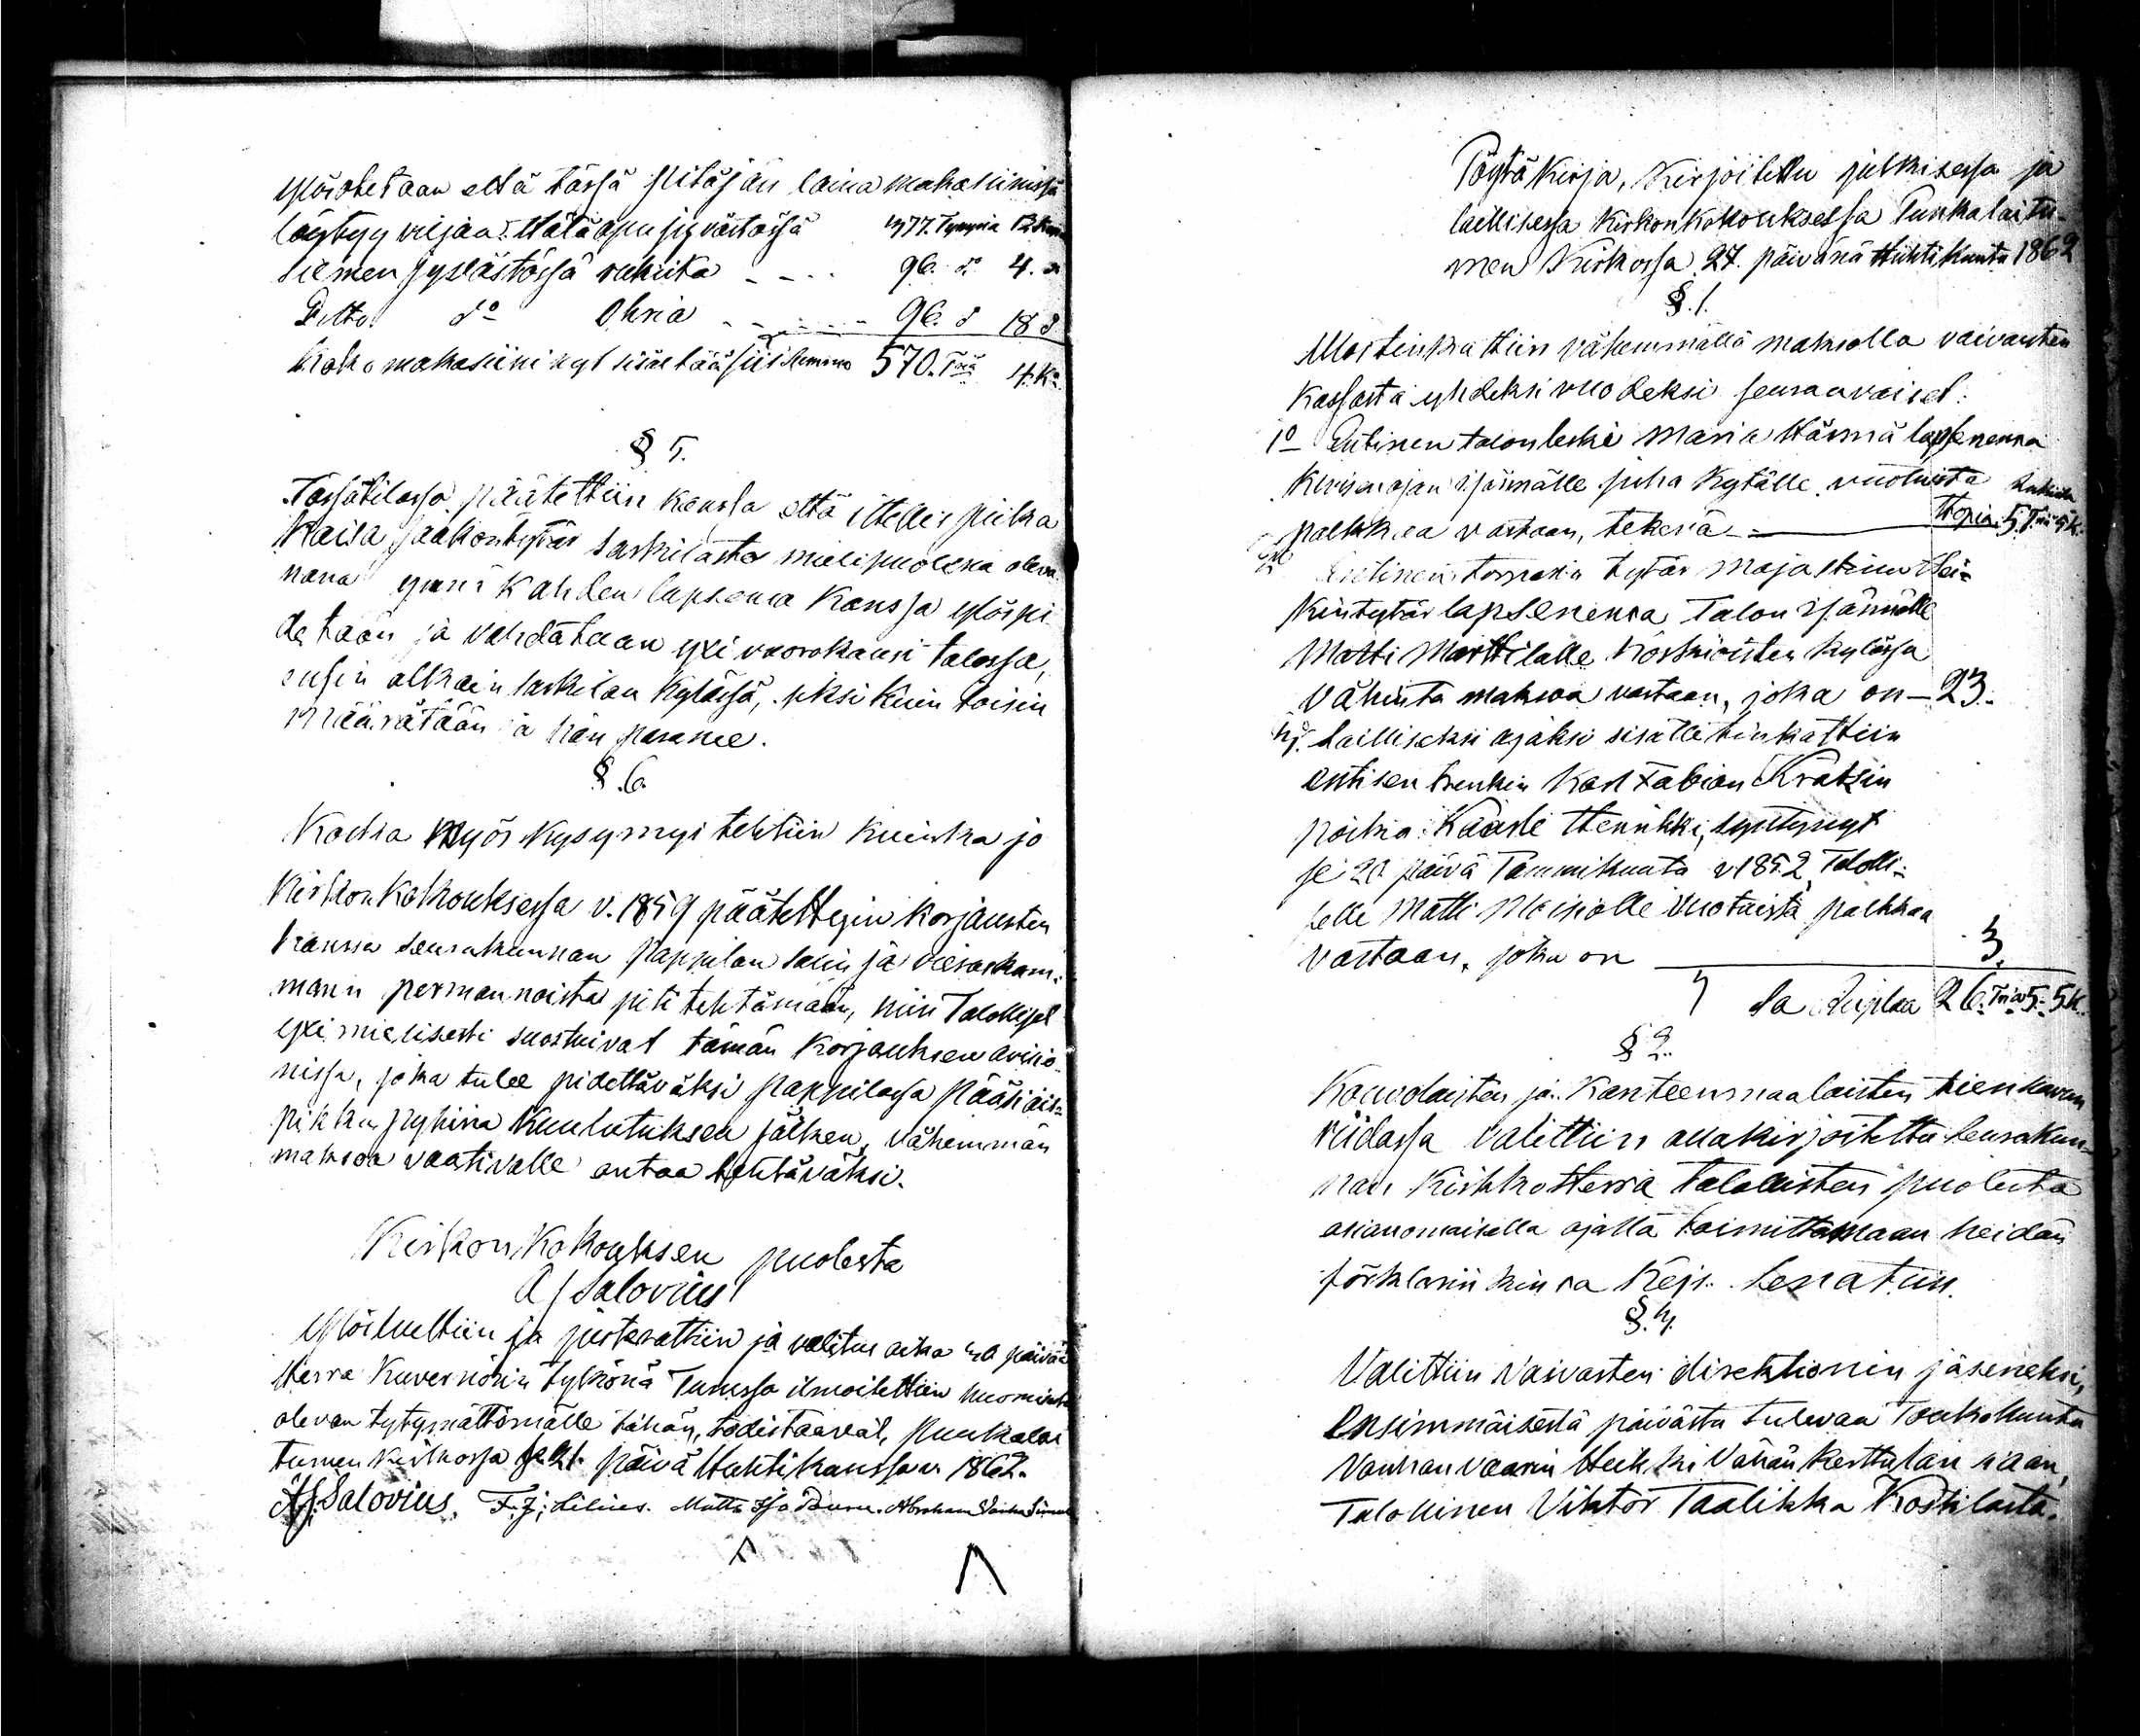 ylösotetaan että tässä pitäjän laina makasiinissa
löytyy viljaa: Hätäapu jyvästössä 377. Tynyriä 12. Kapp
siemen jyvästössä rukiita - - - 96. d:o 4. d:o
Ditto d:o Ohria - - - - 96. d 18 d
Koko makasiini nyt sisältää siis Summa 570. T:riä 4. K:a
§ 5.
Tässätilassa päätettiin kanssa että ittellis piika
Kaisa Jaakontytär Sarkilasta mielipuolena oleva
nana ynnä kahden lapsensa kanssa ylöspi
detään ja vahdataan yxi vuorokausi talossa,
ensin alkain Sarkilan kylässä, siksi kuin toisin
määrätään ja hän paranee.
§. 6.
Koska myös kysymys tehtiin kuinka jo
Kirkon Kokouksessa v. 1859 päätettyin korjausten
kanssa seurakunnan pappilan salin ja vieraskam-
marin permannoista piti tehtämän, niin Talolliset
yximielisesti suostuivat tämän korjauksen avisio-
nissa, joka tulee pidettäväksi pappilassa Pääsiäis-
pikku pyhinä kuulutuksen jälkeen, vähemmän
maksoa vaativalle antaa tehtäväksi.
Kirkon Kokouksen puolesta
A J Salovius
Ylösluettiin ja justerattiin ja valitus aika 30 päivää
Herra Kuvernörin tykönä Turussa ilmoitettiin huomiosta
olevan tytymättömälle tähän, todistaavat, Punkalai
tumen kirkossa se 21. päivä Huhtikuussa v. 1862.
A J. Salovius. F. J. Lilius. Matti Iso Pouru. Abraham Vanha
Pöytä Kirja, Kirjoitettu julkisessa ja
laillisessa Kirkonkokouksessa Punkalaitu-
men Kirkossa 27. päivänä Huhtikuuta 1862
§. 1.
Ulostinkattiin vähemmällä maksolla vaivaisten
Kassasta yhdeksi vuodeksi seuraavaiset:
1:o Entinen talonleski Maria Härmä lapsenensa
Kivisenojan isännälle Juha Kytälle vuotuista Rukiita
palkkaa vastaan, tekevä - Tropia. 5. T:riä 5 k.
2:o Entinen torparin tytär Maja Stiina Hei-
kintytär lapsenensa Talon isännälle
Matti Marttilalle Koskioisten kylässä
Vähintä maksoa vastaan, joka on - 23.
3. Lailliseksi ajaksi sisälle tinkattiin
entisen trenkin Karl Fabian Kratsin
poika: Kaarle Henrikki, syntynyt
se 20 päivä Tammikuuta v 1852, Talolli-
selle Matti Moisiolle vuotuista palkkaa
vastaan, joka on 3.
Sa Ruplaa 26. T:riä 5. 5 k.
§ 2.
Kouvolaisten ja Kanteenmaalaisten tienkavan
riidassa valittiin allakirjoitettu Seurakun-
nan Kirkkoherra talollisten puolesta
asianomaisella ajalla toimittamaan heidän
förklarinkinsa Kejs. Senatiin.
§. 3.
Valittiin Vaivasten direktionin jäseneksi,
Ensimmäisestä päivästä tulevaa Toukokuuta
Vanhan vaarin Heikki Vähän Kerttulan siaan,
Talollinen Viktor Taalikka Koskilasta.